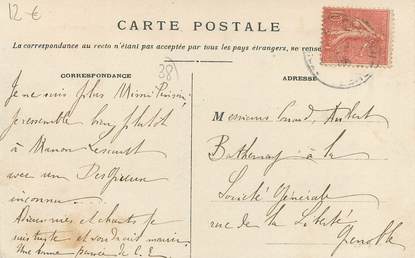 12 €
CARTE POSTALE
La correspondance au recto n'étant pas acceptée par tous les pays étrangers, se rense
38
CORRESPONDANCE
ADRESSE
Je ne suis plus Mimi Pinson
je ressemble bien plutôt
à Manon Lescaut
avec un Des Grieux
inconnu...
Adieu mes et chants je
suis triste et voudrais mourir
Une
Messieurs
à la
Société Générale
rue de la Liberté
Grenoble